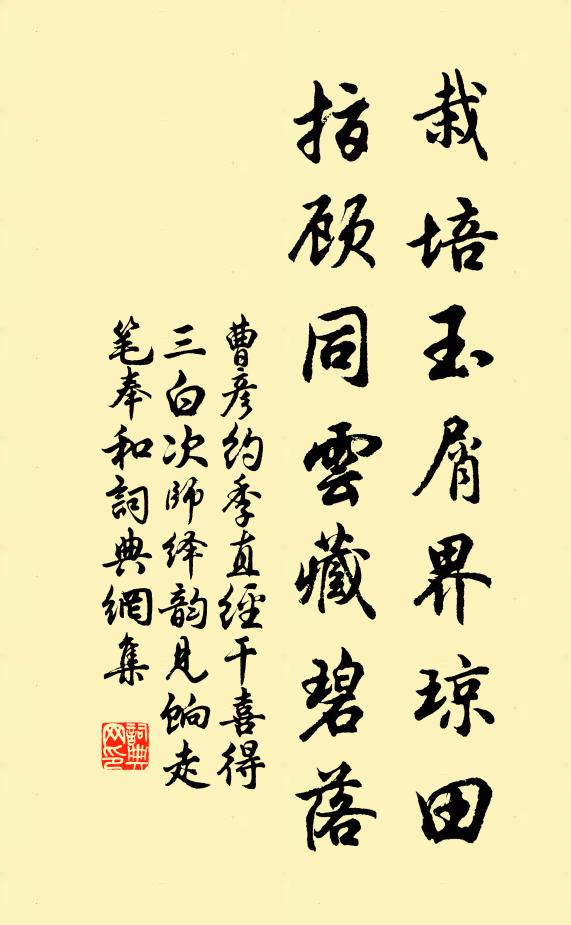 栽培玉屑界琼田
指顾同雲藏碧落
曹彦约季直經干喜得
三白次師绎韵見餉走
笔奉和詞典網集
詞典网印